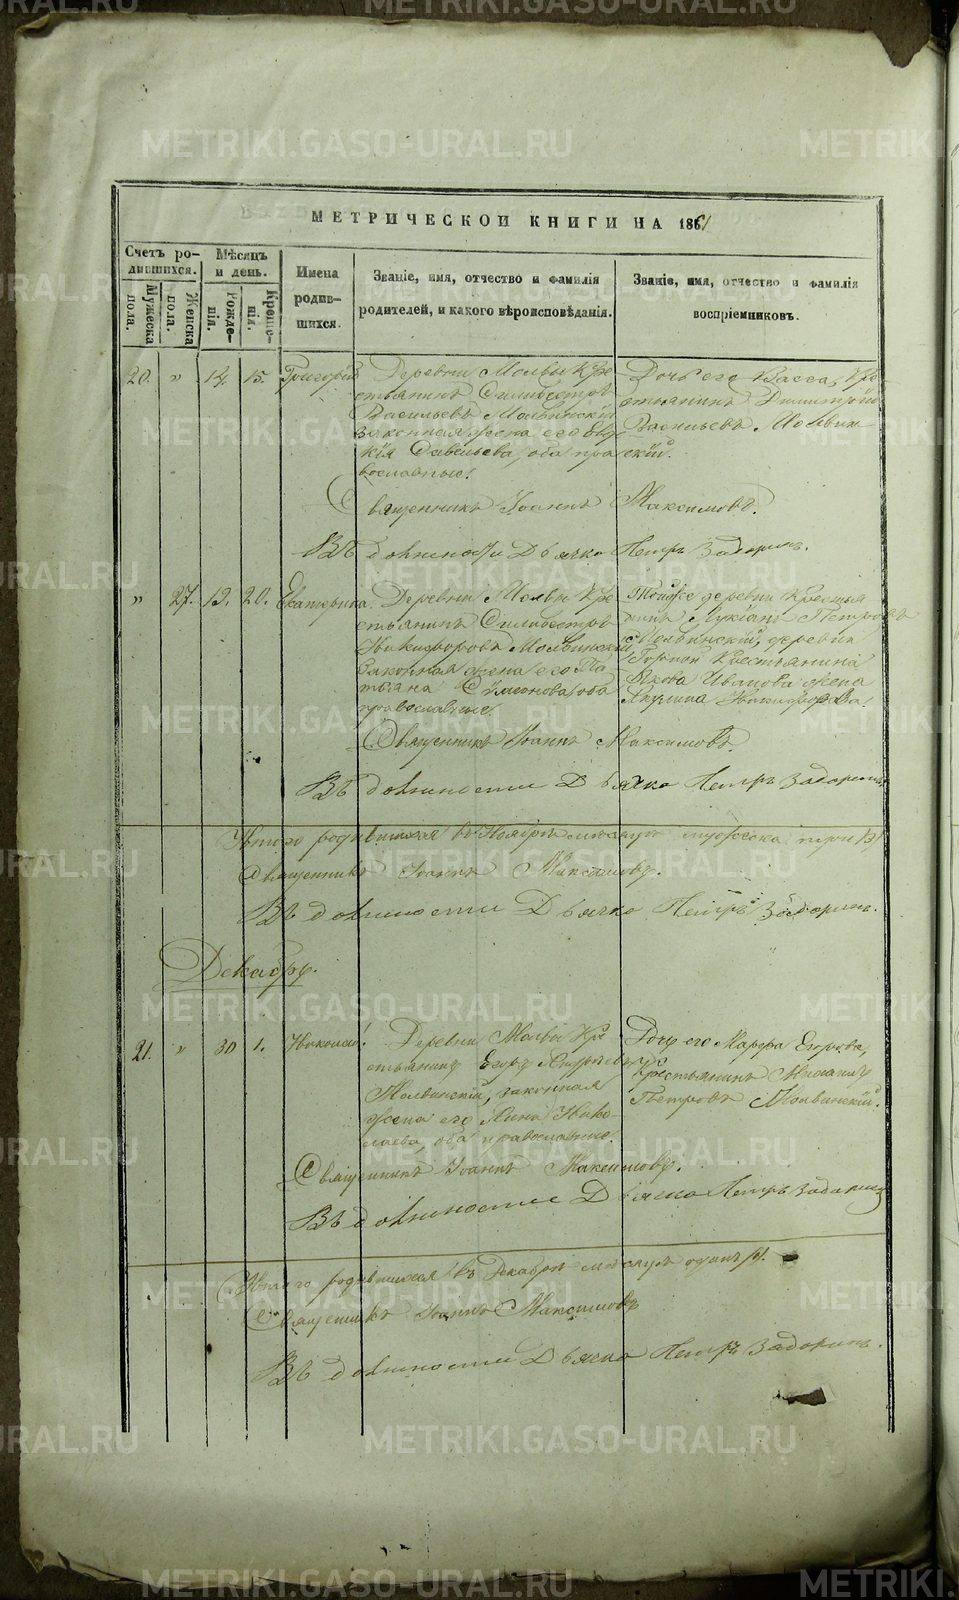 МЕТРИЧЕСКОЙ КНИГИ НА 1861
Счетъ ро-
дившихся.
Мужеска
пола.
Женска
пола.
Мѣсяцъ
и день.
Рожде-
нія.
Креще-
нія.
Имена
родив-
шихся.
Званіе, имя, отчество и фамилія
родителей, и какого вѣроисповѣданія.
Званіе, имя, отчество и фамилія
воспріемниковъ.
20. „ 14. 15. Григорій
Деревни Молвы Кре
стьянинъ Силиверстръ
Васильевъ Молвинскій
законная жена его Евдо
кія Савельева, оба пра
вославные.
Дочь его Васса, Кре
стьянинъ Димитрій
Васильевъ Молвин
скій.
Священникъ Іоаннъ Максимовъ.
Въ должности Дьячка Петръ Задоринъ.
„ 27. 19. 20. Екатерина.
Деревни Молвы Кре
стьянинъ Силиверстръ
Никифоровъ Молвинскій
Законная жена его Та
тьяна Симеонова оба
православные.
Тойже деревни Крестья
нинъ Лукіанъ Петровъ
Молвинскій, деревни
Горной Крестьянина
Якова Иванова жена
Акулина Никифорова.
Священникъ Іоаннъ Максимовъ.
Въ должности Дьячка Петръ Задоринъ.
Итого родившихся въ Ноябрѣ мѣсяцѣ мужеска три /3/
Священникъ Іоаннъ Максимовъ.
Въ должности Дьячка Петръ Задоринъ.
Декабрь.
21. „ 30 1. Николай.
Деревни Молвы Кре
стьянинъ Егоръ
Молвинскій, законная
жена его Анна Нико-
лаева, оба православные.
Дочь его Марфа Егорова,
Крестьянинъ Михаилъ
Петровъ Молвинскій.
Священникъ Іоаннъ Максимовъ.
Въ должности Дьячка Петръ Задоринъ
Итого родившихся въ Декабрѣ мѣсяцѣ одинъ /1/.
Священникъ Іоаннъ Максимовъ
Въ должности Дьячка Петръ Задоринъ.
METRIKI.GASO-URAL.RU